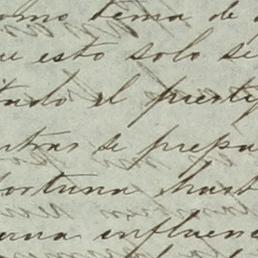 como tema de
que esto solo se
tado el presti
ntras se prepa
fortuna hast
una influen